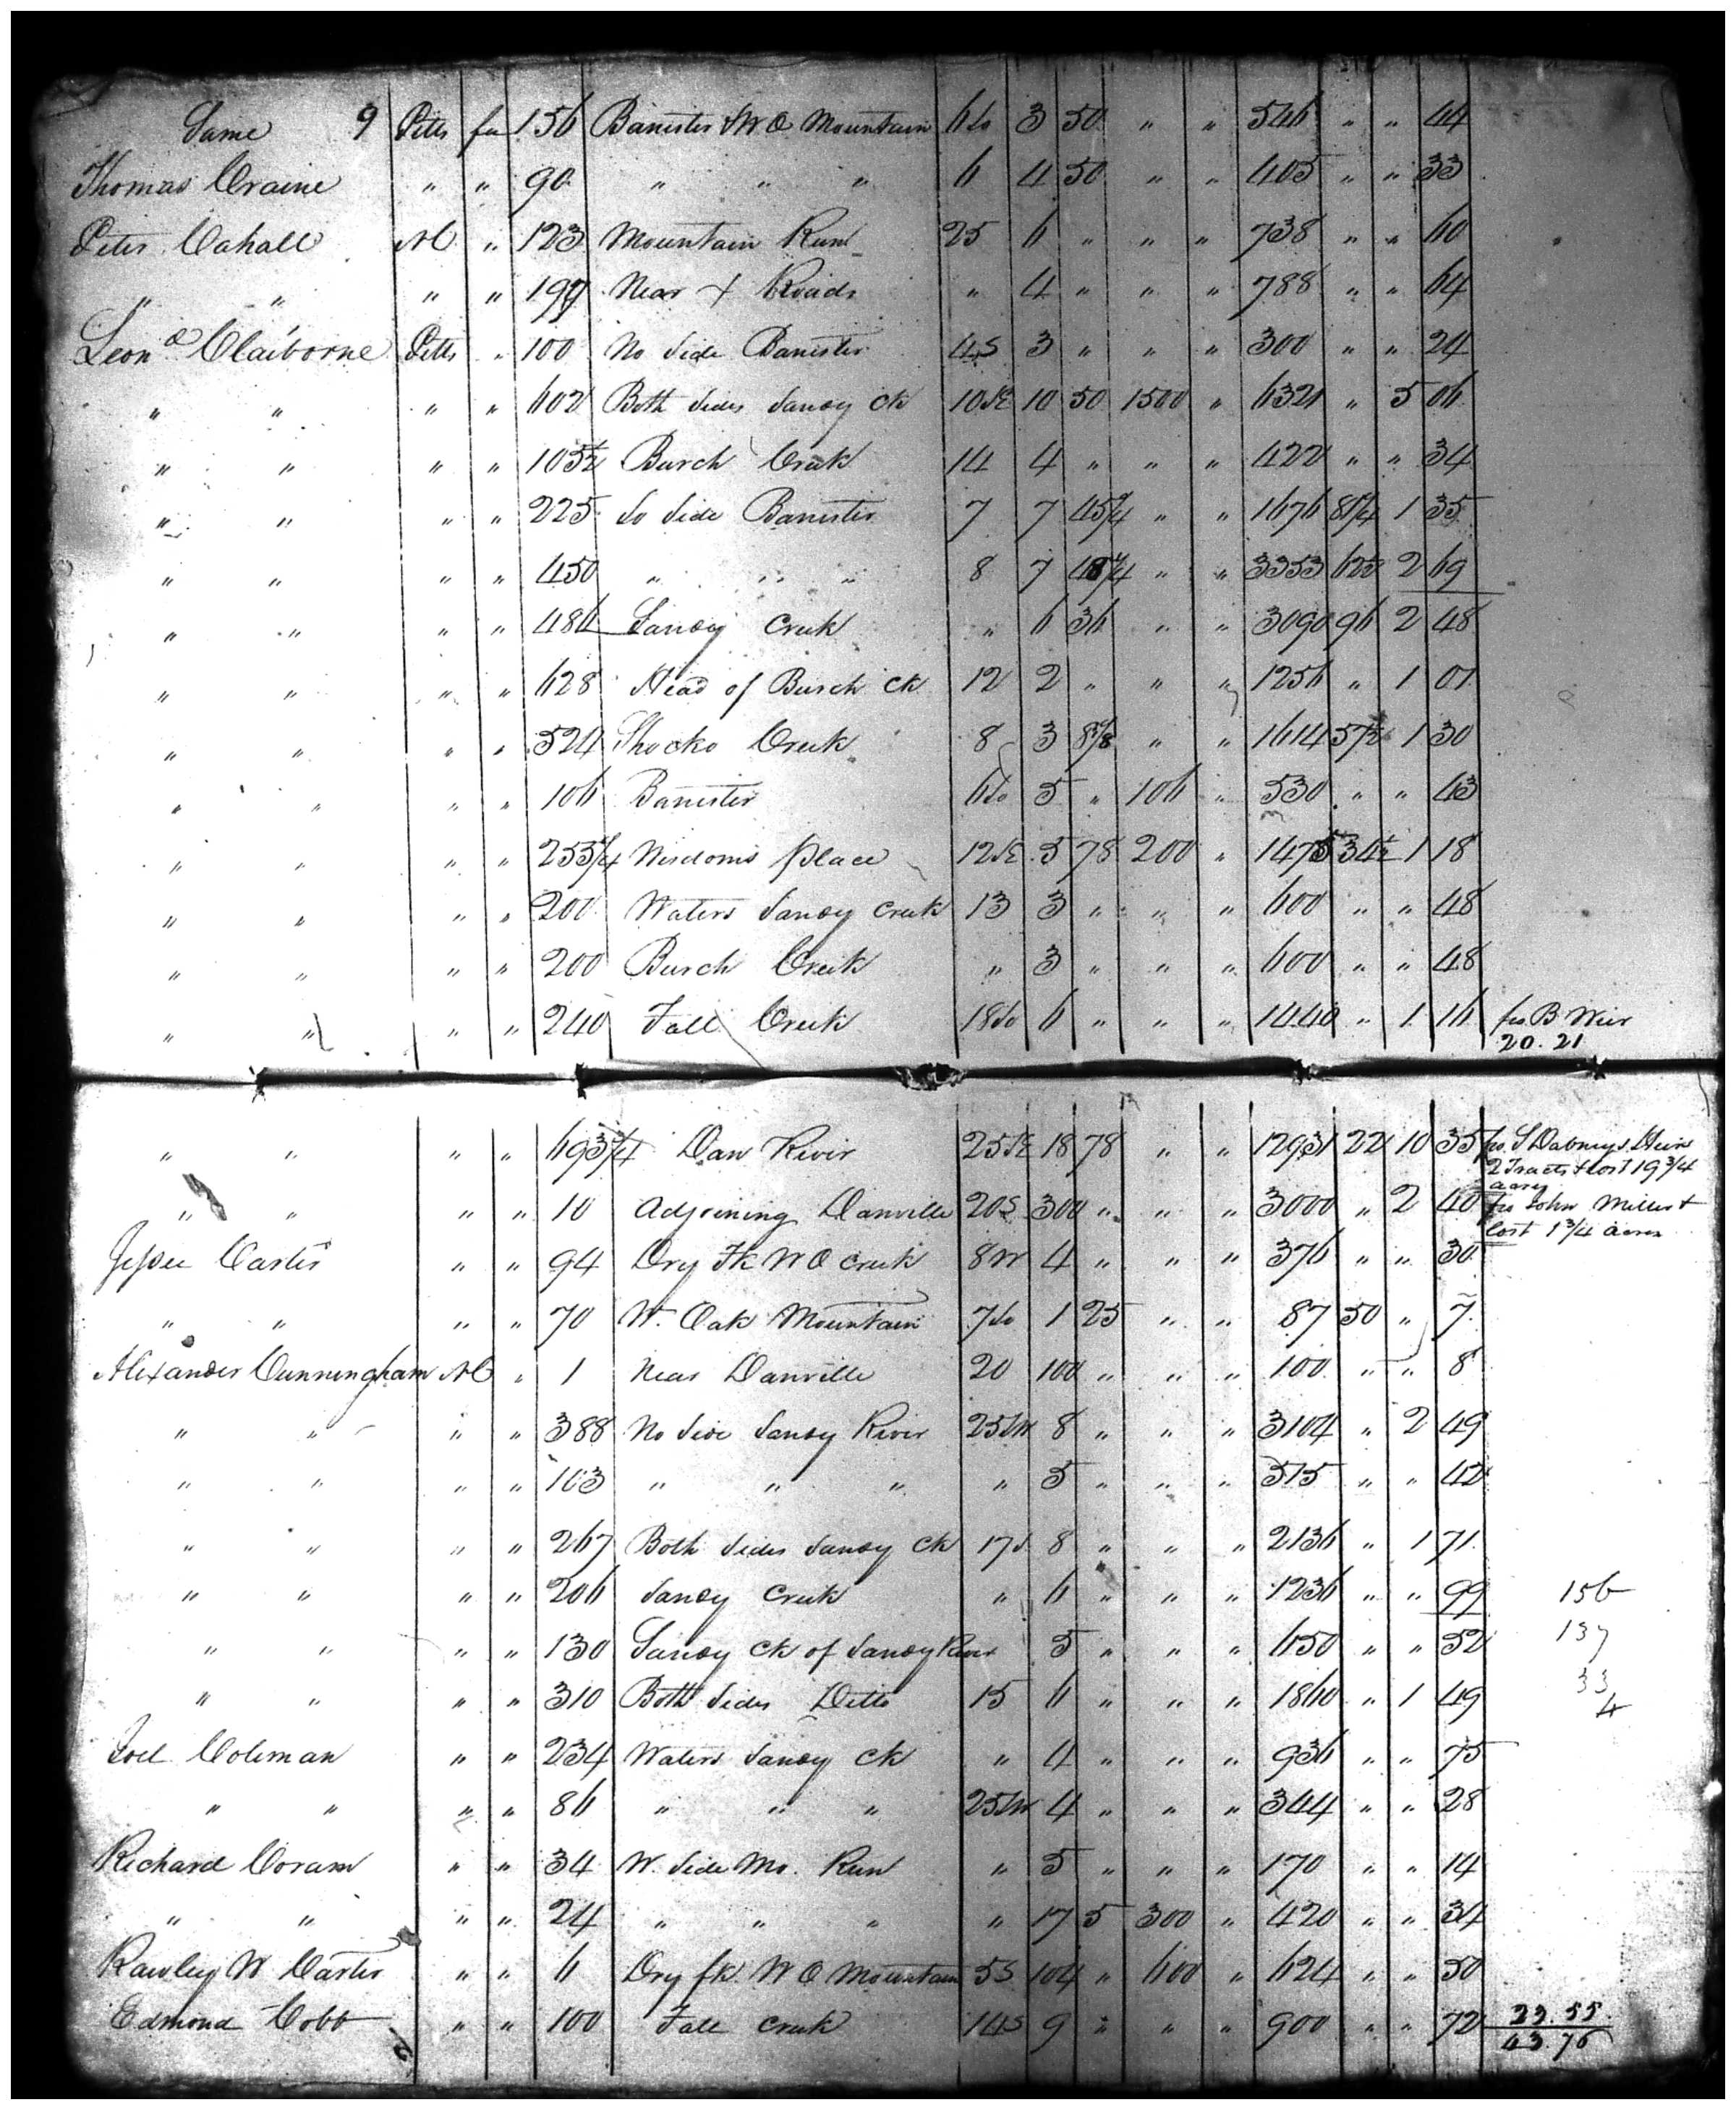 Same 9 Pitts fee 156 Banister & W O Mountain 6 So 3 50 " " 546 " " 44
Thomas Craine " " 90 " " " 6 4 50 " " 405 " " 33
Peter Cahall NC " 123 Mountain Run 25 6 " " " 738 " " 60
" " " " 197 Near + Roads " 4 " " " 788 " " 64
Leond Claiborne Pitts " 100 No Side Banister 4S 3 " " " 300 " " 24
" " " " 602 Both Sides Sandy Ck 10SE 10 50 1500 " 6321 " 5 06
" " " " 105½ Burch Creek 14 4 " " " 422 " " 34
" " " " 225 So Side Banister 7 7 45¼ " " 1676 81¼ 1 35
" " " " 450 " " " 8 7 45¼ " " 3353 62½ 2 69
" " " " 486 Sandy Creek " 6 36 " " 3090 96 2 48
" " " " 628 Head of Burch Ck 12 2 " " " 1256 " 1 01
" " " " 524 Shocko Creek 8 3 " " 1614 57½ 1 30
" " " " 106 Banister 6So 5 " 106 " 530 " " 43
" " " " 255¼ Wisdoms place 12SE 5 78 200 " 1475 34½ 1 18
" " " " 200 Waters Sandy Creek 13 3 " " " 600 " " 48
" " " " 200 Burch Creek " 3 " " " 600 " " 48
" " " " 240 Fall Creek 18So 6 " " " 1440 " 1 16 fro B Wier
20.21
" " " " 693¾ Dan River 25SE 18 78 " " 12931 22 10 35 fro S Dabneys Heirs
2 Tracts & lost 19¾
acres
" " " " 10 Adjoining Danville 20S 300 " " " 3000 " 2 40 fro John Miller &
lost 1¾ acres
Jessee Carter " " 94 Dry Fk W O Creek 8W 4 " " " 376 " " 30
" " " " 70 W. Oak Mountain 7So 1 25 " " 87 50 " 7
Alexander Cunningham NC " 1 Near Danville 20 100 " " " 100 " " 8
" " " " 388 No Side Sandy River 25SW 8 " " " 3104 " 2 49
" " " " 103 " " " " 5 " " " 515 " " 42
" " " " 267 Both Sides Sandy Ck 17S 8 " " " 2136 " 1 71
" " " " 206 Sandy Creek " 6 " " " 1236 " " 99 156
" " " " 130 Sandy Ck of Sandy River 5 " " " 650 " " 52 137
" " " " 310 Both Sides Ditto 15 6 " " " 1860 " 1 49 33
4
Joel Coleman " " 234 Waters Sandy Ck " 4 " " " 936 " " 75
" " " " 86 " " " 25SW 4 " " " 344 " " 28
Richard Coram " " 34 W. Side Mo. Run " 5 " " " 170 " " 14
" " " " 24 " " " " 17 5 300 " 420 " " 34
Rawley W Carter " " 6 Dry fk. W O Mountain 5S 104 " 600 " 624 " " 50
Edmond Cobb " " 100 Fall Creek 14S 9 " " " 900 " " 72 23.55.
43.76